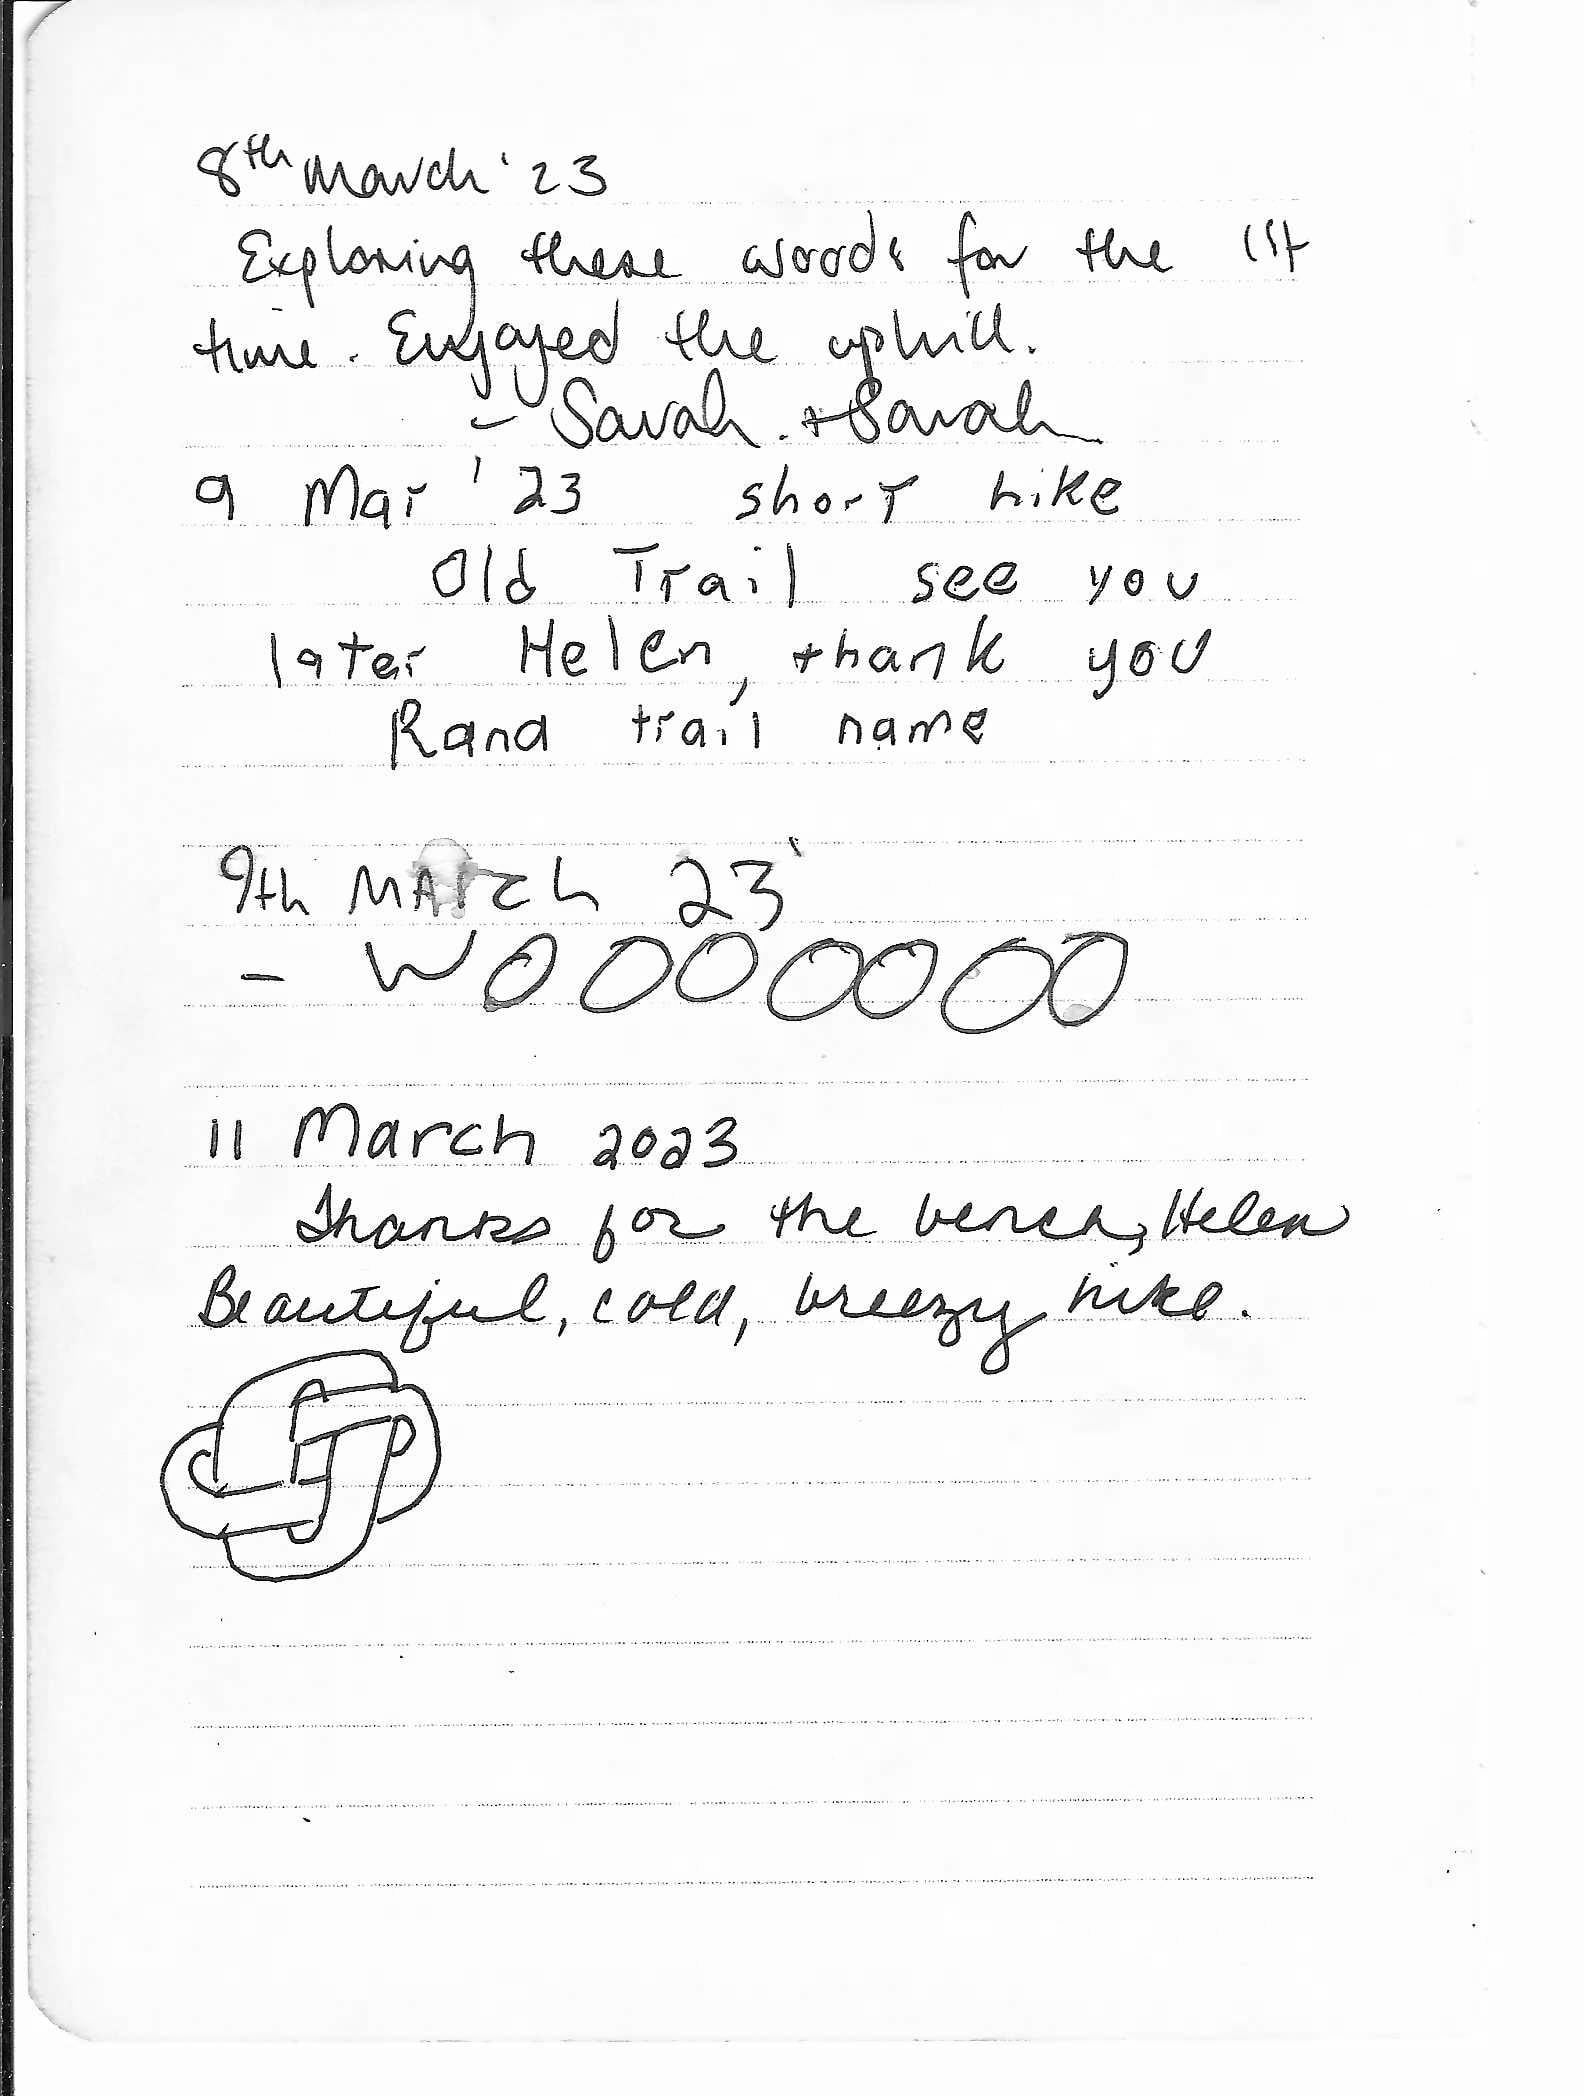 8th March '23
Exploring these woods for the 1st
time. Enjoyed the uphill.
- Sarah. + Sarah
9 Mar '23 short hike
Old Trail see you
later Helen, thank you
Rand trail name
9th MARch 23'
- WOOOOOOO
11 March 2023
Thanks for the bench, Helen
Beautiful, cold, breezy hike.